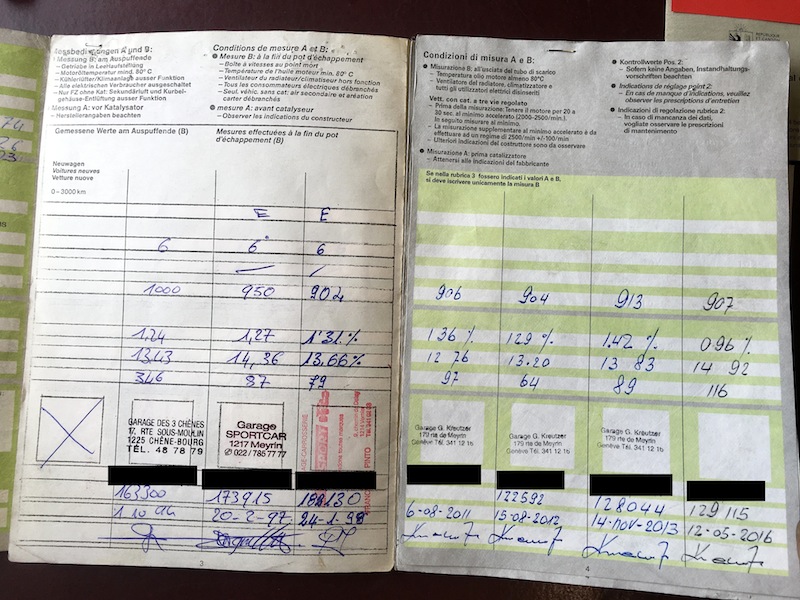 Messbedingungen A und B:
Messung B: am Auspuffende
– Getriebe in Leerlaufstellung
– Motoröltemperatur mind. 80° C
– Kühlerlüfter/Klimaanlage ausser Funktion
– Alle elektrischen Verbraucher ausgeschaltet
– Nur FZ ohne Kat: Sekundärluft und Kurbel-
gehäuse-Entlüftung ausser Funktion
Messung A: vor Katalysator
– Herstellerangaben beachten
Conditions de mesure A et B:
Mesure B: à la fin du pot d'échappement
– Boîte à vitesses au point mort
– Température de l'huile moteur min. 80° C
– Ventilateur du radiateur/climatiseur hors fonction
– Tous les consommateurs électriques débranchés
– Seul. véhic. sans cat: air secondaire et aération
carter débranchés
mesure A: avant catalyseur
– Observer les indications du constructeur
Gemessene Werte am Auspuffende (B)
Mesures effectuées à la fin du pot
d'échappement (B)
Neuwagen
Voitures neuves
Vetture nuove
0–3000 km
E E
6 6° 6
1000 950 902
1.24 1,27 1.31%
13.43 14,36 13,66%
346 87 79
GARAGE DES 3 CHÊNES
17, RTE SOUS-MOULIN
1225 CHÊNE-BOURG
TÉL. 48 78 79
Garage
SPORTCAR
1217 Meyrin
✆ 022/785 77 77
163300 173915
20-2-97 24-1-98
3
Condizioni di misura A e B:
Misurazione B: all'usciata del tubo di scarico
– Temperatura olio motore almeno 80°C
– Ventilatore del radiatore, climatizzatore e
tutti gli utilizzatori elettrici disinseriti
Vett. con cat. a tre vie regolato
– Prima della misurazione: Tenere il motore per 20 a
30 sec. al minimo accelerato (2000-2500/min.).
In seguito misurare al minimo.
– La misurazione supplementare al minimo accelerato è da
effettuare ad un regime di 2500/min +/-100/min
– Ulteriori indicazioni del costruttore sono da osservare
Misurazione A: prima catalizzatore
– Attenersi alle indicazioni del fabbricante
Kontrollwerte Pos. 2:
– Sofern keine Angaben, Instandhaltungs-
vorschriften beachten
Indications de réglage point 2:
– En cas de manque d'indications, veuillez
observer les prescriptions d'entretien
Indicazioni di regolazione rubrica 2:
– In caso di mancanza dei dati,
vogliate osservare le prescrizioni
di mantenimento
Se nella rubrica 3 fossero indicati i valori A e B,
si deve iscrivere unicamente la misura B
906 904 913 907
1 36 % 1 29 % 1.42 % 0.96 %
12 76 13.20 13 83 14 92
97 64 89 116
Garage G. Kreutzer
179 rte de Meyrin
Genève Tél. 341 12 15
Garage G. Kreutzer
179 rte de Meyrin
Genève Tél. 341 12 15
Garage G. Kreutzer
179 rte de Meyrin
Genève Tél. 341 12 15
122592 128044 129 115
6-08-2011 15-08-2012 14-nov-2013 12-05-2016
4